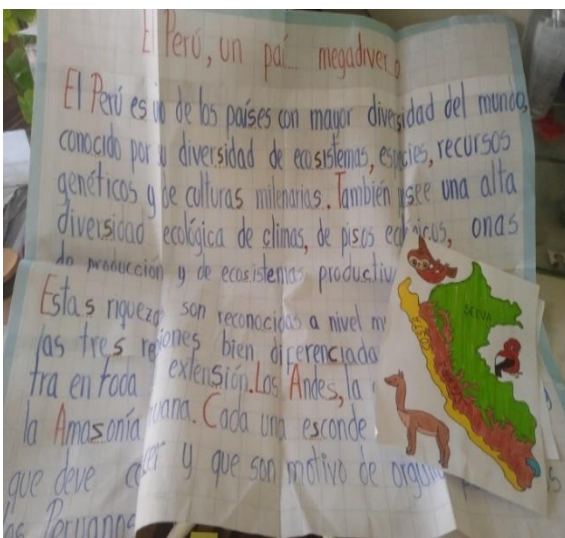 El Perú, un paí... megadiver o
El Perú es un de los países con mayor diversidad del mundo,
conocido por u diversidad de ecosistemas, especies, recursos
genéticos y de culturas milenarias. También osee una alta
diversidad ecológica de climas, de pisos ecológicos, onas
de producción y de ecosistemas productiv
Estas riquezas son reconocidas a nivel m
las tres regiones bien diferenciada
tra en toda extensión. Los Andes, la
la Amasonía ruana. Cada una esconde
que deve cer y que son motivo de orgullo
los Peruanos
SELVA